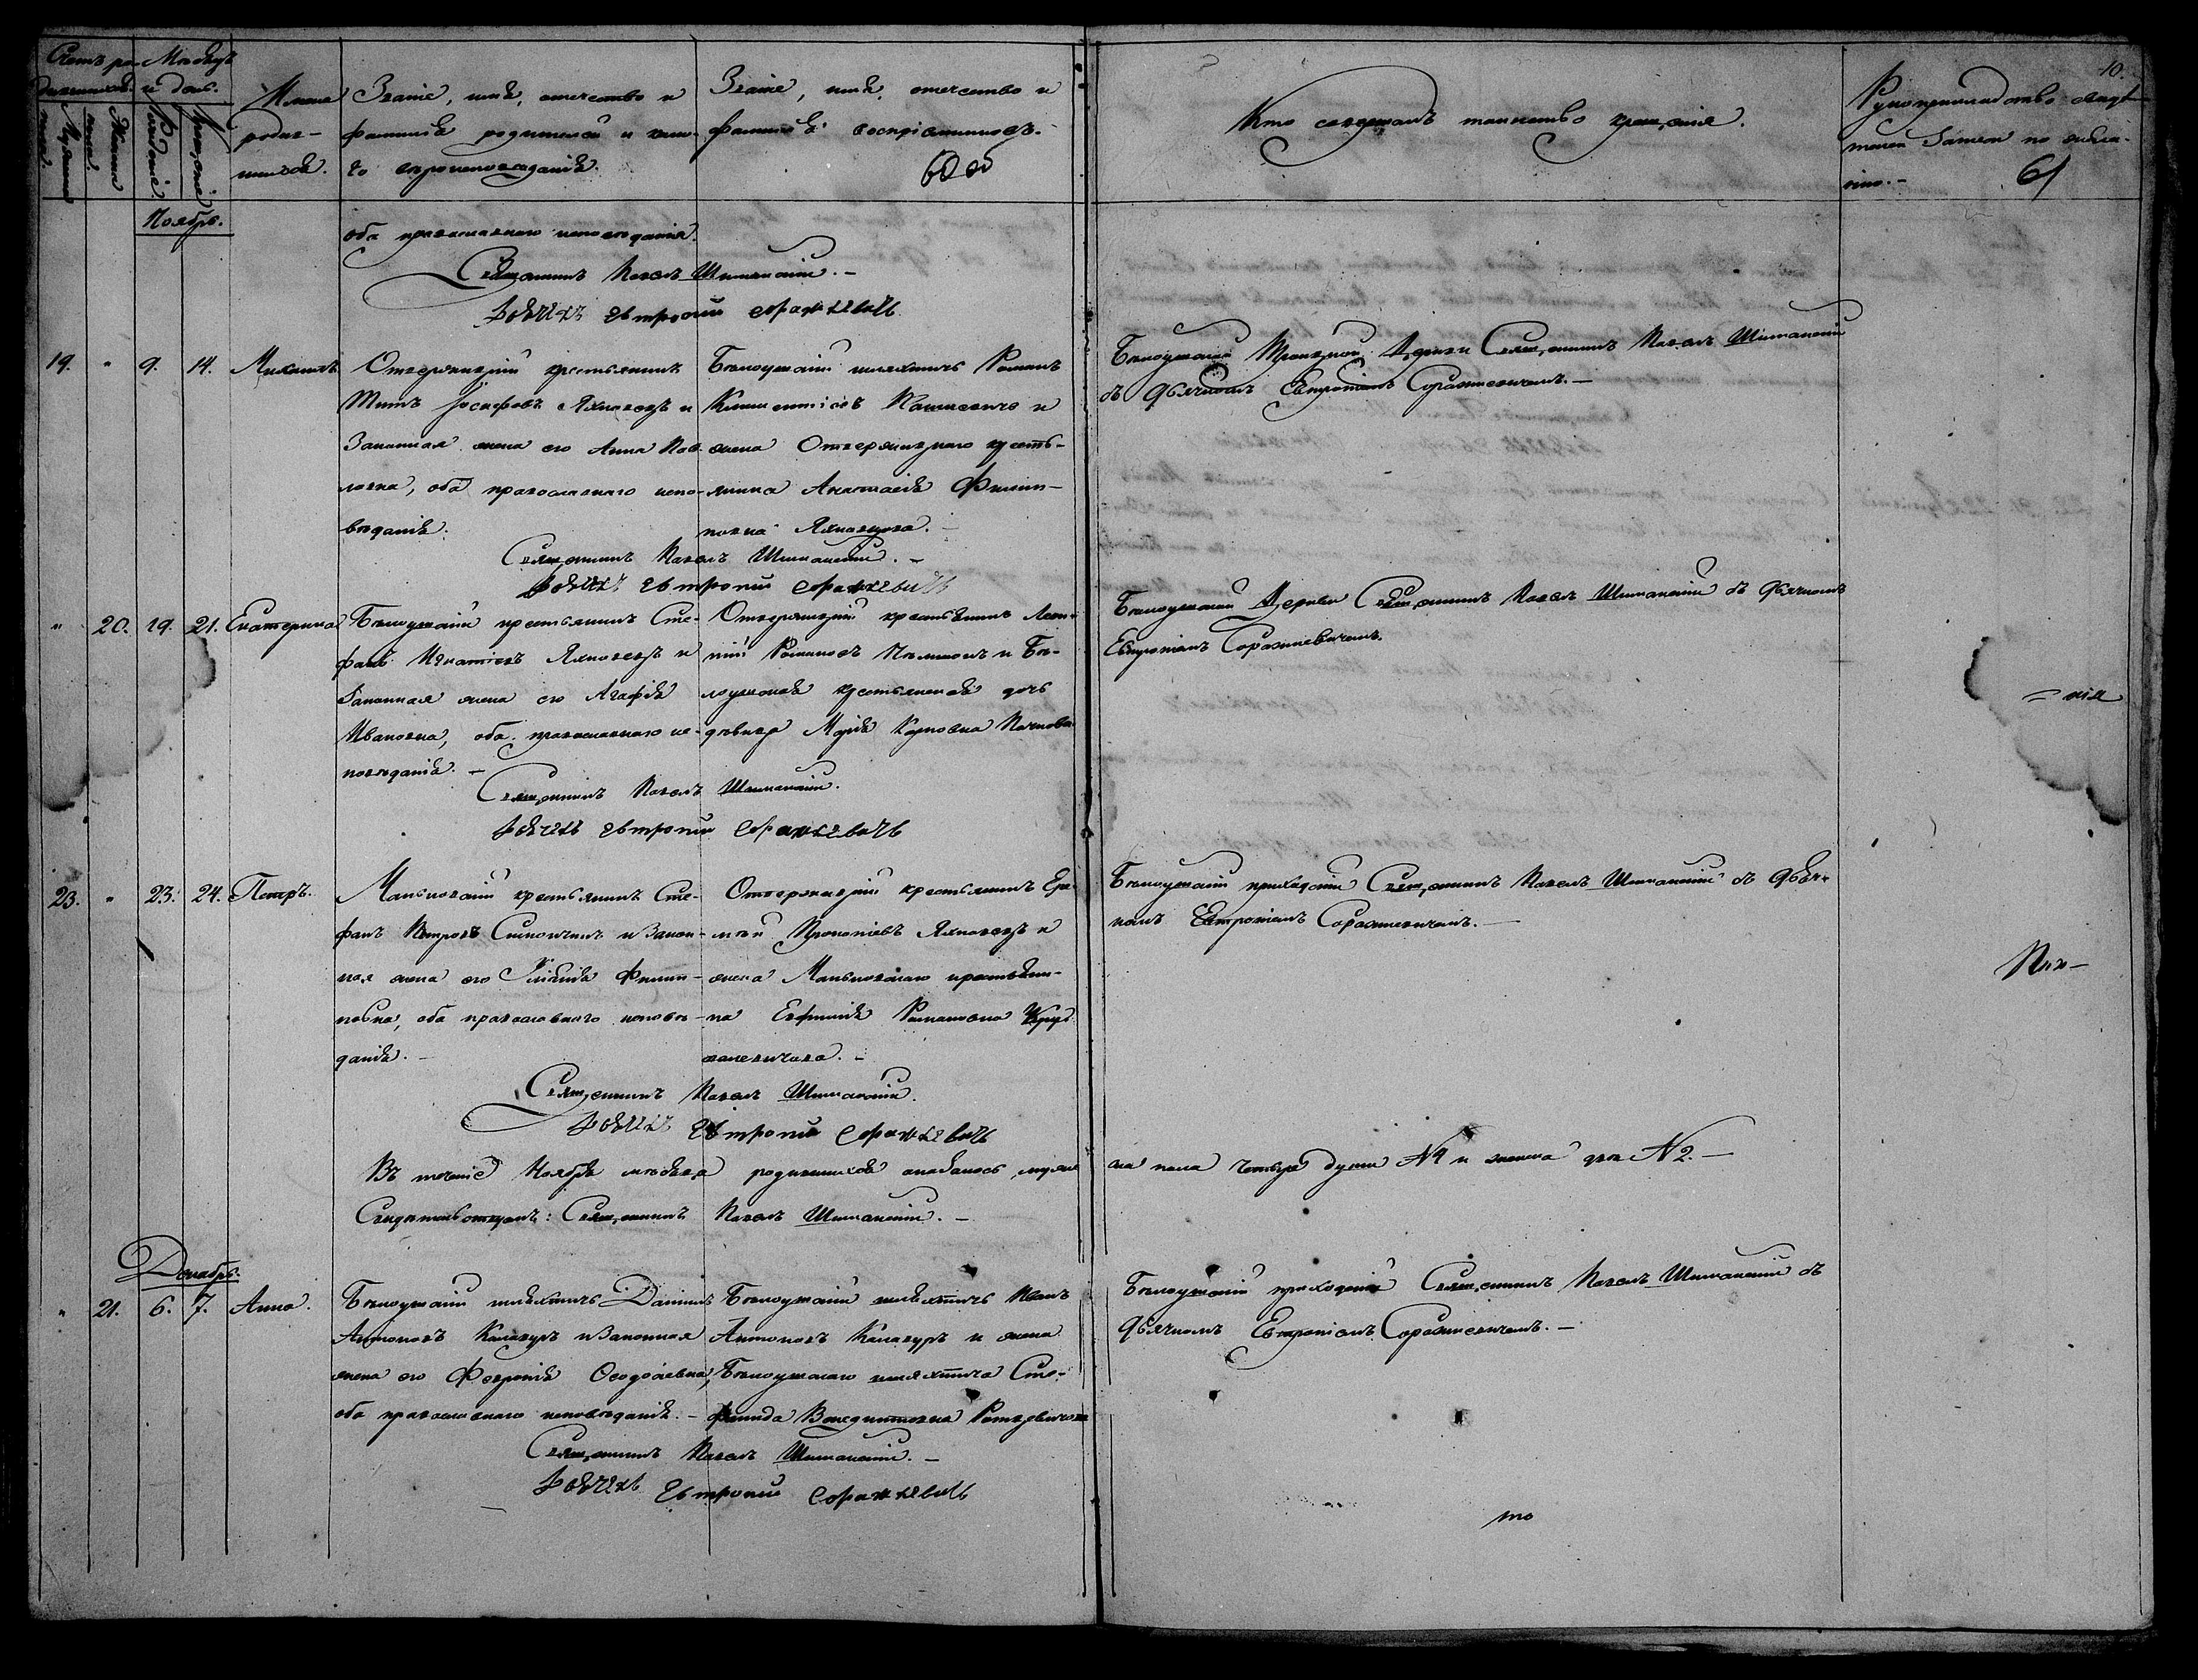 Счетъ ро-
дившихся.
Мѣсяцъ
и день.
Мужеска
пола.
Женска
пола.
Рожденіе.
Крещеніе
Имена
родив-
шихся.
Званіе, имя, отечество и
фамилія родителей и како-
го вѣроисповѣданія.
Званіе, имя, отечество и
фамилія воспріемниковъ.
60 об
Кто совершалъ таинство крещенія.
10.
Рукоприкладство свидѣ-
телей записи по жела-
нію.-
61
Ноябрь.
оба православнаго исповѣданія.
Священникъ Павелъ Шиманскій.-
Дьячекъ Евтропій Соражкевичъ
19. " 9. 14. Михаилъ
Отвержицкій крестьянинъ
Титъ Іосифовъ Яхновецъ и
Законная жена его Анна Пав-
ловна, оба православнаго испо-
вѣданія.
Бѣлоушскій шляхтичъ Романъ
Климентіевъ Пашкевичъ и
жена Отвержицкаго кресть-
янина Анастасія Филип-
повна Яхновцова.-
Бѣлоушской Троицкой Церкви Священникъ Павелъ Шиманскій
съ дьячкомъ Евтропіемъ Соражкевичемъ.-
Священникъ Павелъ Шиманскій.-
Дьячекъ Евтропій Соражкевичъ
" 20. 19. 21. Екатерина
Бѣлоушскій крестьянинъ Сте-
фанъ Игнатіевъ Яхновецъ и
Законная жена его Агафія
Ивановна, оба православнаго ис-
повѣданія.-
Отвержицкій крестьянинъ Леон-
тій Романовъ и Бѣ-
лоушская крестьянская дочь
дѣвица Марія Карповна
Бѣлоушской Церкви Священникъ Павелъ Шиманскій съ дьячкомъ
Евтропіемъ Соражкевичемъ.
= нія
Священникъ Павелъ Шиманскій.
Дьячекъ Евтропій Соражкевичъ
23. " 23. 24. Петръ.
Маньковскій крестьянинъ Сте-
фанъ Петровъ и Закон-
ная жена его Юліанія Филип-
повна, оба православнаго исповѣ-
данія.-
Отвержицкій крестьянинъ Ере-
мѣй Прокопіевъ Яхновецъ и
жена Маньковскаго крестьяни-
на Евфимія Романовна
Бѣлоушскій приходскій Священникъ Павелъ Шиманскій съ дьяч-
комъ Евтропіемъ Соражкевичемъ.-
Священникъ Павелъ Шиманскій.
Дьячекъ Евтропій Соражкевичъ
Въ теченіе Ноября мѣсяца родившихся оказалось муже-
ска пола четыре души №4 и женска двѣ №2.-
Свидѣтельствуемъ: Священникъ Павелъ Шиманскій.-
Декабрь.
" 21. 6. 7. Анна.
Бѣлоушскій шляхтичъ Даніилъ
Антоновъ Калауръ и Законная
жена его Февронія Ѳеодосіевна,
оба православнаго исповѣданія.-
Бѣлоушскій шляхтичъ Иванъ
Антоновъ Калауръ и жена
Бѣлоушскаго шляхтича Сте-
фанида Венедиктовна
Бѣлоушскій приходскій Священникъ Павелъ Шиманскій съ
дьячкомъ Евтропіемъ Соражкевичемъ.-
Священникъ Павелъ Шиманскій.-
Дьячекъ Евтропій Соражкевичъ
то